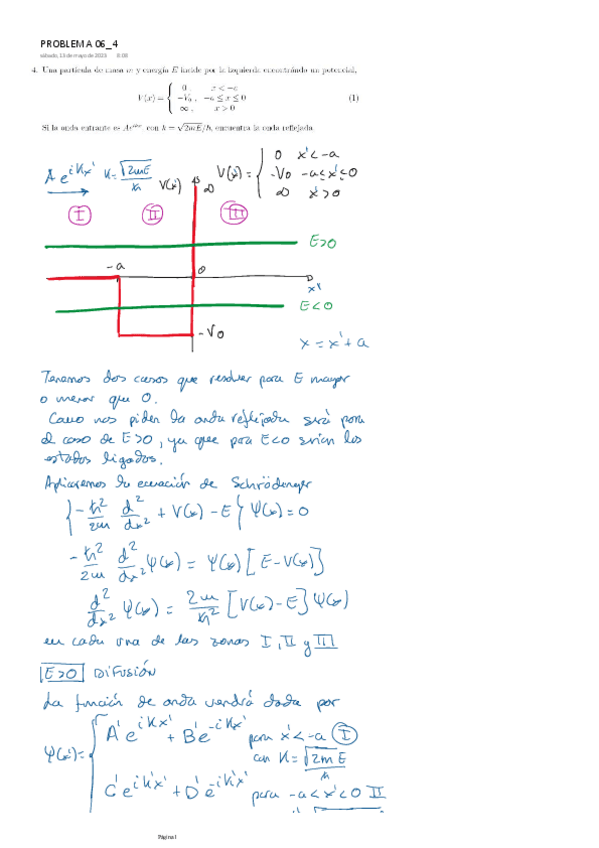 PROBLEMA 06_4
sábado, 13 de mayo de 2023 8:03
4. Una partícula de masa m y energía E incide por la izquierda encontrándo un potencial,
V(x) = { 0 x < −a
−V₀ , −a ≤ x ≤ 0
∞ , x > 0 (1)
Si la onda entrante es Ae^{ikx} con k = √2mE/ħ, encuentra la onda reflejada.
A e^{iKx'} K = √2mE/ħ V(x') ∞ V(x') = { 0 x' < -a
-V0 -a ≤ x' ≤ 0
∞ x' > 0
I II III
E>0
-a 0
x'
E<0
-V0
x = x' + a
Tenemos dos casos que resolver para E mayor
o menor que 0.
Como nos piden la onda reflejada será para
el caso de E>0, ya que para E<0 serían los
estados ligados.
Aplicaremos la ecuación de Schrödinger
{ -ħ²/2m d²/dx² + V(x) - E } Ψ(x) = 0
-ħ²/2m d²/dx² Ψ(x) = Ψ(x) [E - V(x)]
d²/dx² Ψ(x) = 2m/ħ² [V(x) - E] Ψ(x)
en cada una de las zonas I, II y III
E>0 DIFUSIÓN
La función de onda vendrá dada por
Ψ(x') = { A' e^{iKx'} + B' e^{-iKx'} para x' < -a I
con K = √2mE/ħ
C' e^{iK'x'} + D' e^{-iK'x'} para -a < x' < 0 II
Página 1